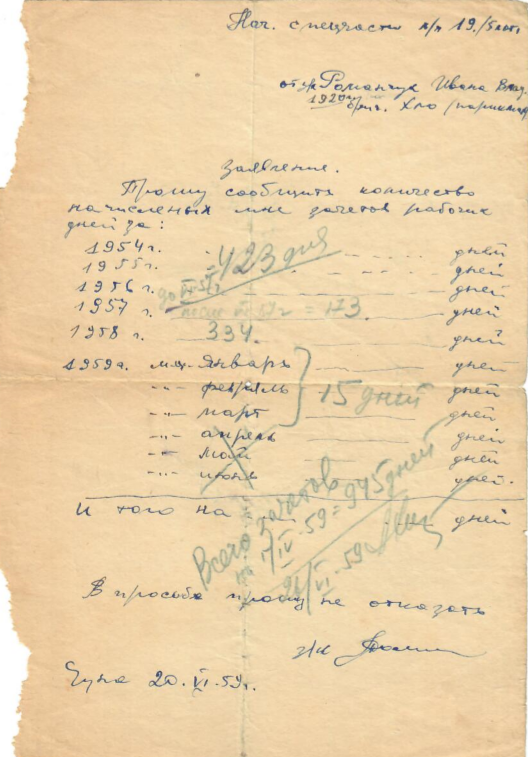 Нач. спецчасти л/п 19/5
от з/к Романчук Ивана Влад.
1920 г.
Заявление.
Прошу сообщить количество
начисленых мне зачетов рабочих
дней за:
1954 г. дней
1955 г. 423 дня дней
1956 г. дней
1957 г. после 57 г = 173. дней
1958 г. 334. дней
1959 г. м-ц Январь дней
-"- февраль 15 дней дней
-"- март дней
-"- апрель дней
-"- май дней
-"- июнь дней.
И того на дней
Всего зачетов
на 1/IV-59 = 945 дней
/VI-59
В просьбе прошу не отказать
з/к
Чуна 20.VI.59 г.